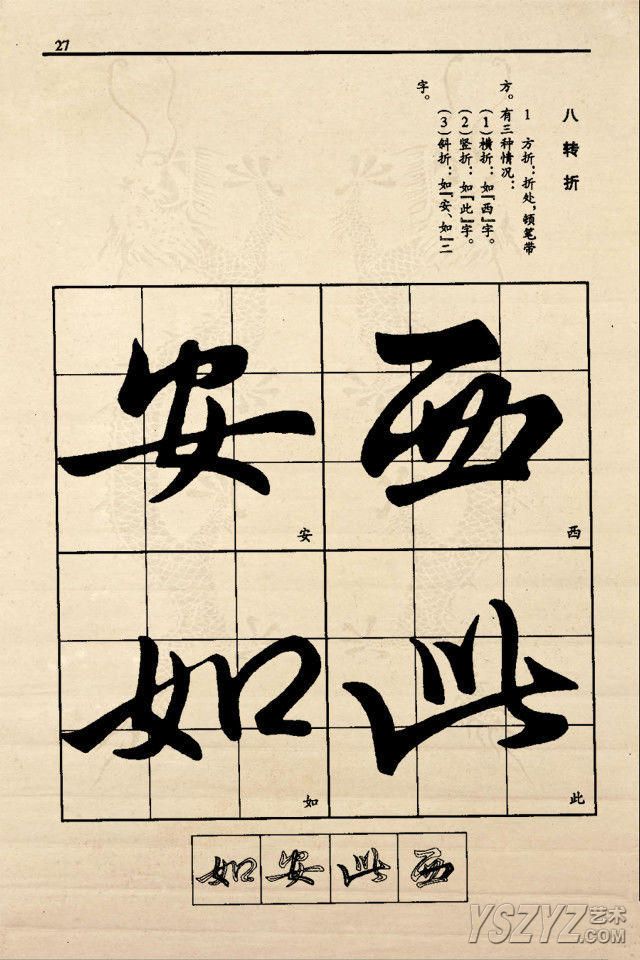 27
八 转 折
1 方折：折处，顿笔带
方。有三种情况：
(1)横折：如『西』字。
(2)竖折：如『此』字。
(3)斜折：如『安、如』二
字。
西
西
此
此
安
安
如
如
如 安 此 西
YSZYZ艺术
.COM